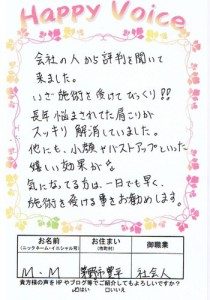 Happy Voice
会社の人から評判を聞いて
来ました。
いざ施術を受けてびっくり!!
長年悩まされてた肩こりが
スッキリ解消していました。
他にも、小顔やバストアップといった
嬉しい効果が
気になってる方は、一日でも早く、
施術を受ける事をお勧めします。
お名前
(ニックネーム・イニシャル可)
お住まい
(市町村)
御職業
M・M
茅野市豊平
社会人
貴方様の声をHPやブログ等でご紹介してもよろしいですか?
はい
いいえ